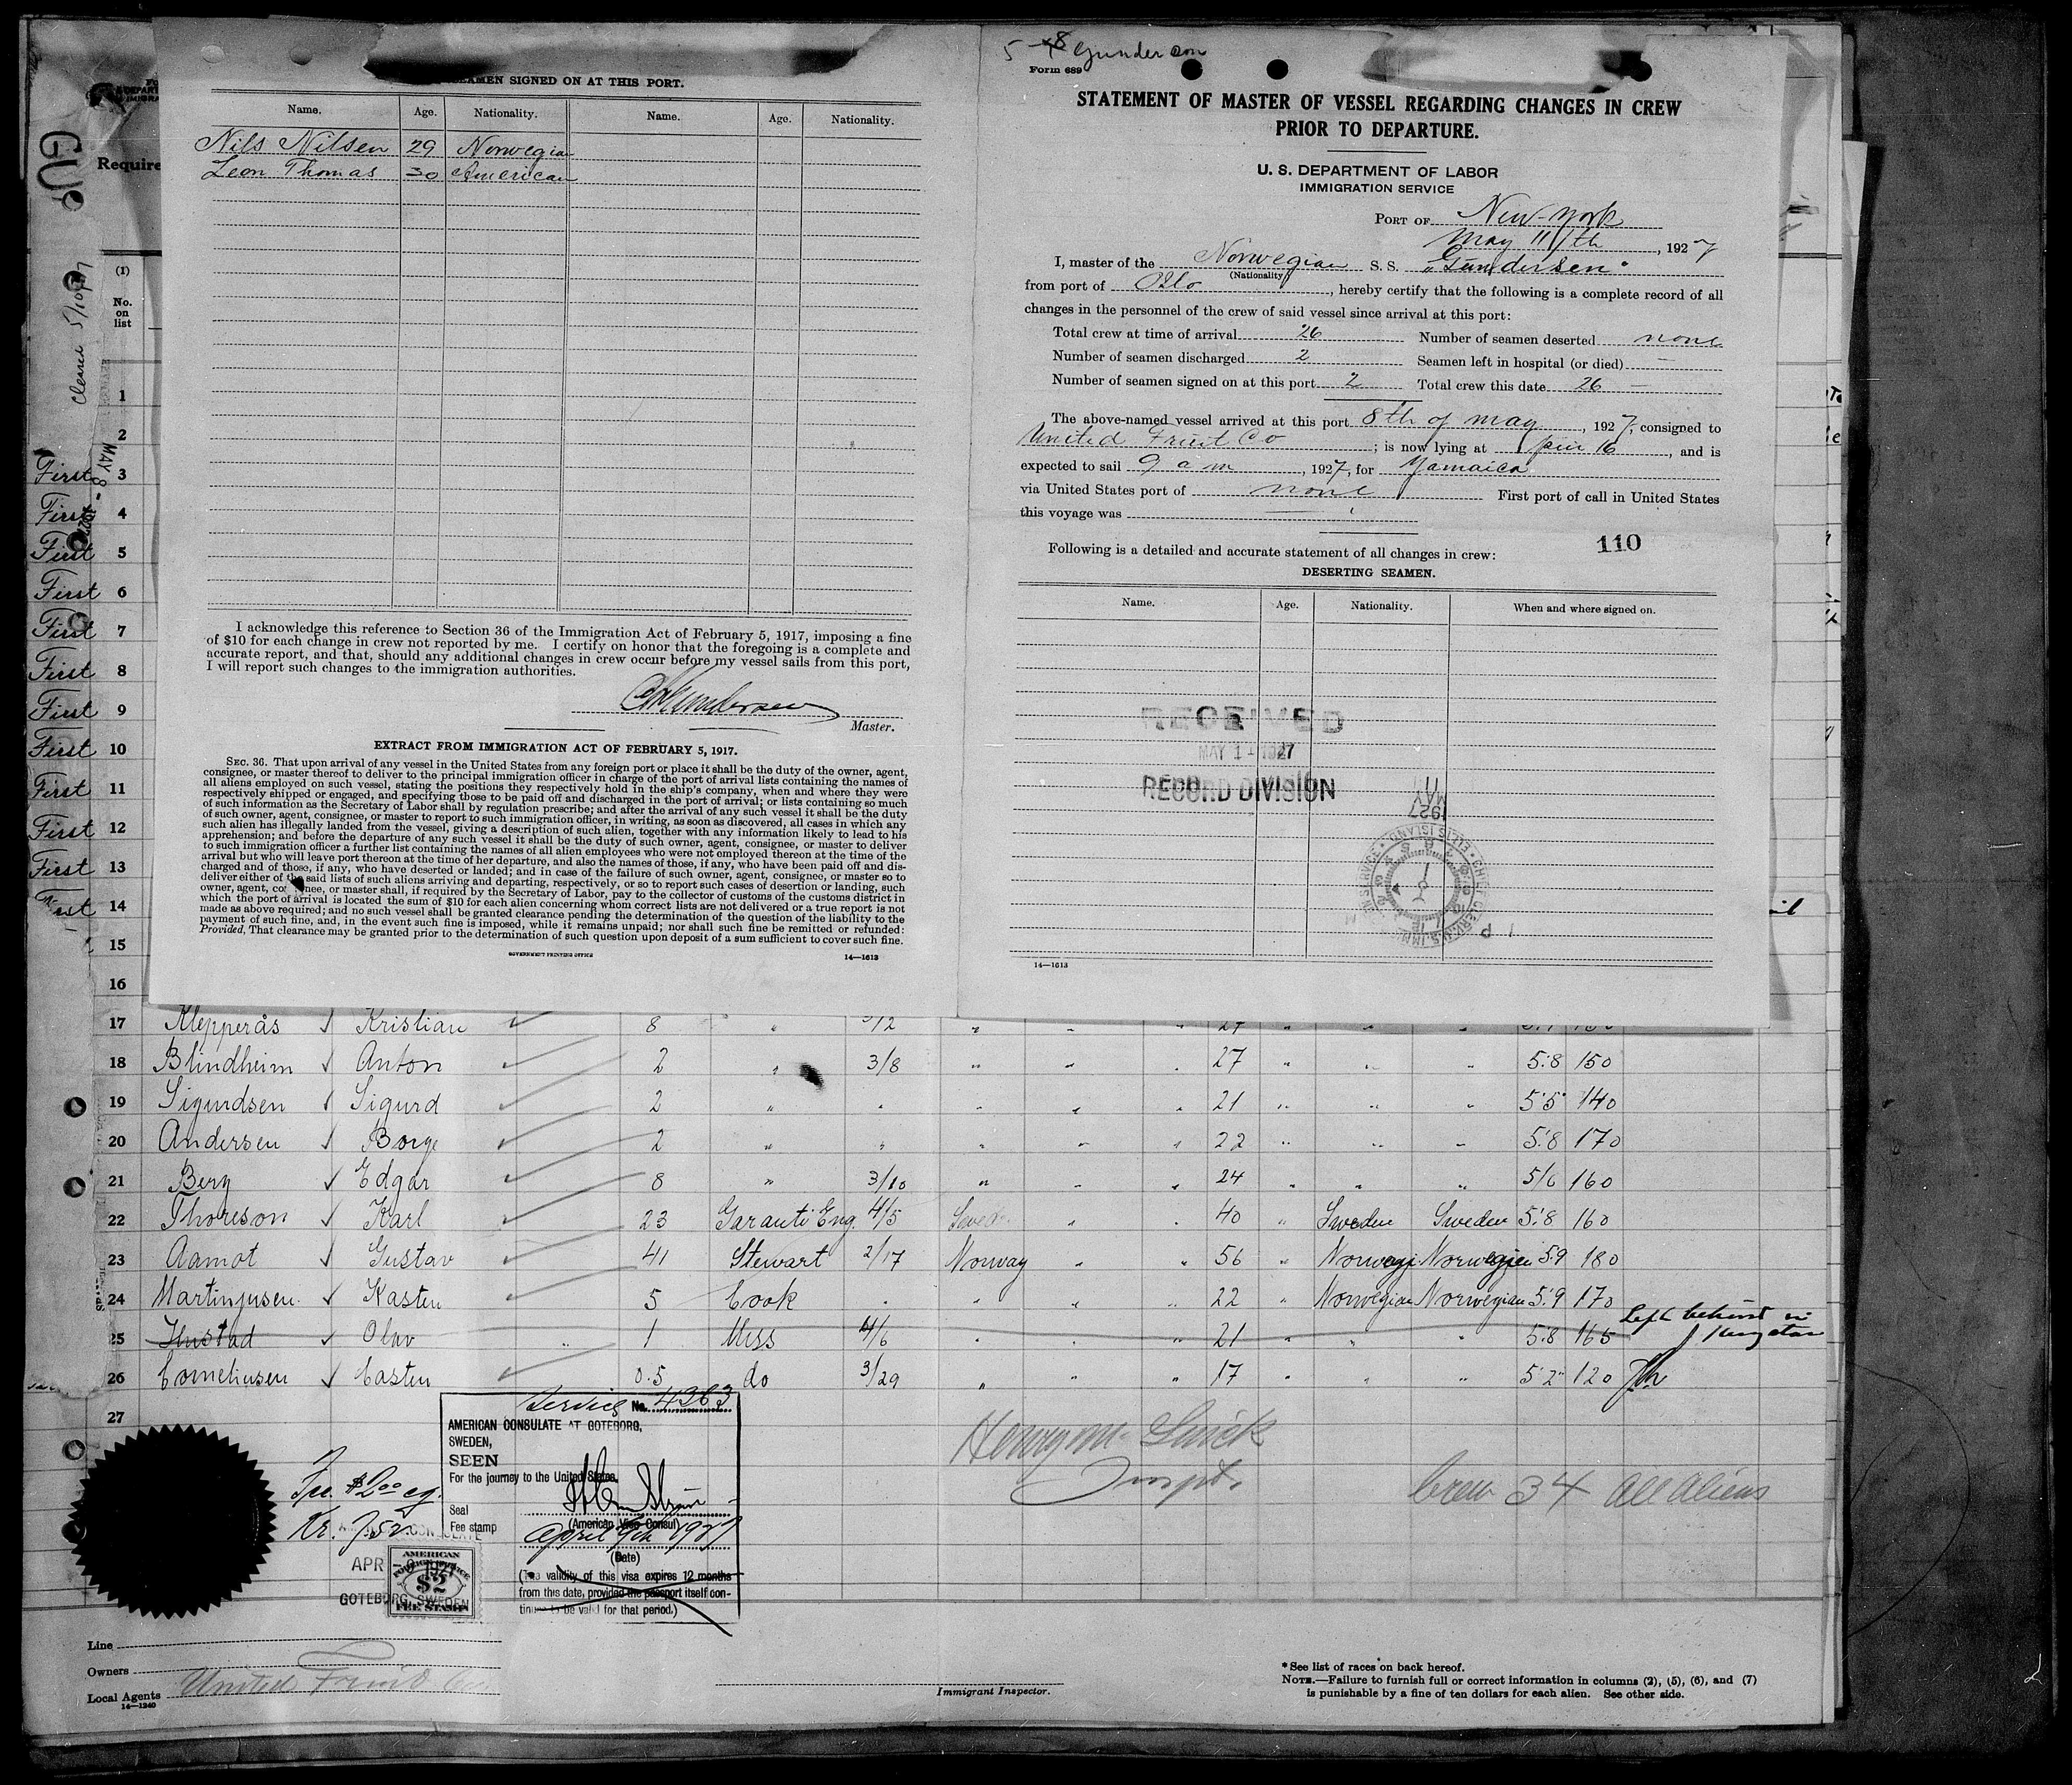 5-8 Gunderson
Form 689
SEAMEN SIGNED ON AT THIS PORT.
Name. Age. Nationality. Name. Age. Nationality.
Nils Nilsen 29 Norwegian
Leon Thomas 30 American
I acknowledge this reference to Section 36 of the Immigration Act of February 5, 1917, imposing a fine
of $10 for each change in crew not reported by me. I certify on honor that the foregoing is a complete and
accurate report, and that, should any additional changes in crew occur before my vessel sails from this port,
I will report such changes to the immigration authorities.
Gundersen
Master.
EXTRACT FROM IMMIGRATION ACT OF FEBRUARY 5, 1917.
SEC. 36. That upon arrival of any vessel in the United States from any foreign port or place it shall be the duty of the owner, agent,
consignee, or master thereof to deliver to the principal immigration officer in charge of the port of arrival lists containing the names of
all aliens employed on such vessel, stating the positions they respectively hold in the ship's company, when and where they were
respectively shipped or engaged, and specifying those to be paid off and discharged in the port of arrival; or lists containing so much
of such information as the Secretary of Labor shall by regulation prescribe; and after the arrival of any such vessel it shall be the duty
of such owner, agent, consignee, or master to report to such immigration officer, in writing, as soon as discovered, all cases in which any
such alien has illegally landed from the vessel, giving a description of such alien, together with any information likely to lead to his
apprehension; and before the departure of any such vessel it shall be the duty of such owner, agent, consignee, or master to deliver
to such immigration officer a further list containing the names of all alien employees who were not employed thereon at the time of the
arrival but who will leave port thereon at the time of her departure, and also the names of those, if any, who have been paid off and dis-
charged and of those, if any, who have deserted or landed; and in case of the failure of such owner, agent, consignee, or master so to
deliver either of the said lists of such aliens arriving and departing, respectively, or so to report such cases of desertion or landing, such
owner, agent, consignee, or master shall, if required by the Secretary of Labor, pay to the collector of customs of the customs district in
which the port of arrival is located the sum of $10 for each alien concerning whom correct lists are not delivered or a true report is not
made as above required; and no such vessel shall be granted clearance pending the determination of the question of the liability to the
payment of such fine, and, in the event such fine is imposed, while it remains unpaid; nor shall such fine be remitted or refunded:
Provided, That clearance may be granted prior to the determination of such question upon deposit of a sum sufficient to cover such fine.
GOVERNMENT PRINTING OFFICE 14—1613
STATEMENT OF MASTER OF VESSEL REGARDING CHANGES IN CREW
PRIOR TO DEPARTURE.
U. S. DEPARTMENT OF LABOR
IMMIGRATION SERVICE
PORT OF New-York
May 11/th, 1927
I, master of the Norwegian S. S. „Gundersen"
(Nationality)
from port of Oslo, hereby certify that the following is a complete record of all
changes in the personnel of the crew of said vessel since arrival at this port:
Total crew at time of arrival 26 Number of seamen deserted none
Number of seamen discharged 2 Seamen left in hospital (or died) —
Number of seamen signed on at this port 2 Total crew this date 26 —
The above-named vessel arrived at this port 8th of May, 1927, consigned to
United Fruit Co; is now lying at pier 16, and is
expected to sail 9 a m, 1927, for Yamaica
via United States port of none First port of call in United States
this voyage was
Following is a detailed and accurate statement of all changes in crew: 110
DESERTING SEAMEN.
Name. Age. Nationality. When and where signed on.
RECEIVED
MAY 11 1927
RECORD DIVISION
MAY 11
1927
14—1613
GU
Require
Cleared 5/10/27
MAY 8
(1)
No.
on
list
1
2
First 3
First 4
First 5
First 6
First 7
First 8
First 9
First 10
First 11
First 12
First 13
First 14
15
16
17 Klepperås Kristian 8 " 27
18 Blindheim Anton 2 " 3/8 " " " 27 " " " 5.8 150
19 Sigurdsen Sigurd 2 " " " " " 21 " " " 5.5 140
20 Andersen Borge 2 " " " " " 22 " " " 5.8 170
21 Berg Edgar 8 " 3/10 " " " 24 " " " 5/6 160
22 Thoreson Karl 23 Garanti Eng. 4/5 Sweden " " 40 " Sweden Sweden 5.8 160
23 Aamot Gustav 41 Stewart 2/17 Norway " " 56 " Norwegi. Norwegien 5.9 180
24 Martinjusen Kasten 5 Cook " " " " 22 " Norwegian Norwegian 5.9 170
25 Hustad Olav 1 Mess 4/6 " " " 21 " " " 5.8 165 Left behind in Kingston
26 Corneliusen Casten 0.5 do 3/29 " " " 17 " " " 5.2 120
27
Service No. 4363
AMERICAN CONSULATE AT GOTEBORG,
SWEDEN,
SEEN
For the journey to the United States.
Seal
Fee stamp
(American Vice Consul)
April 9th 1927
(Date)
(The validity of this visa expires 12 months
from this date, provided the passport itself con-
tinues to be valid for that period.)
Fee $2.00 eq.
Kr. 7.52
APR
GOTEBORG, SWEDEN
AMERICAN
FOREIGN SERVICE
$2
FEE STAMP
Inspt.
Crew 34 all aliens
Line
Owners
Local Agents United Fruit Co
14—1240
Immigrant Inspector.
* See list of races on back hereof.
NOTE.—Failure to furnish full or correct information in columns (2), (5), (6), and (7)
is punishable by a fine of ten dollars for each alien. See other side.
2